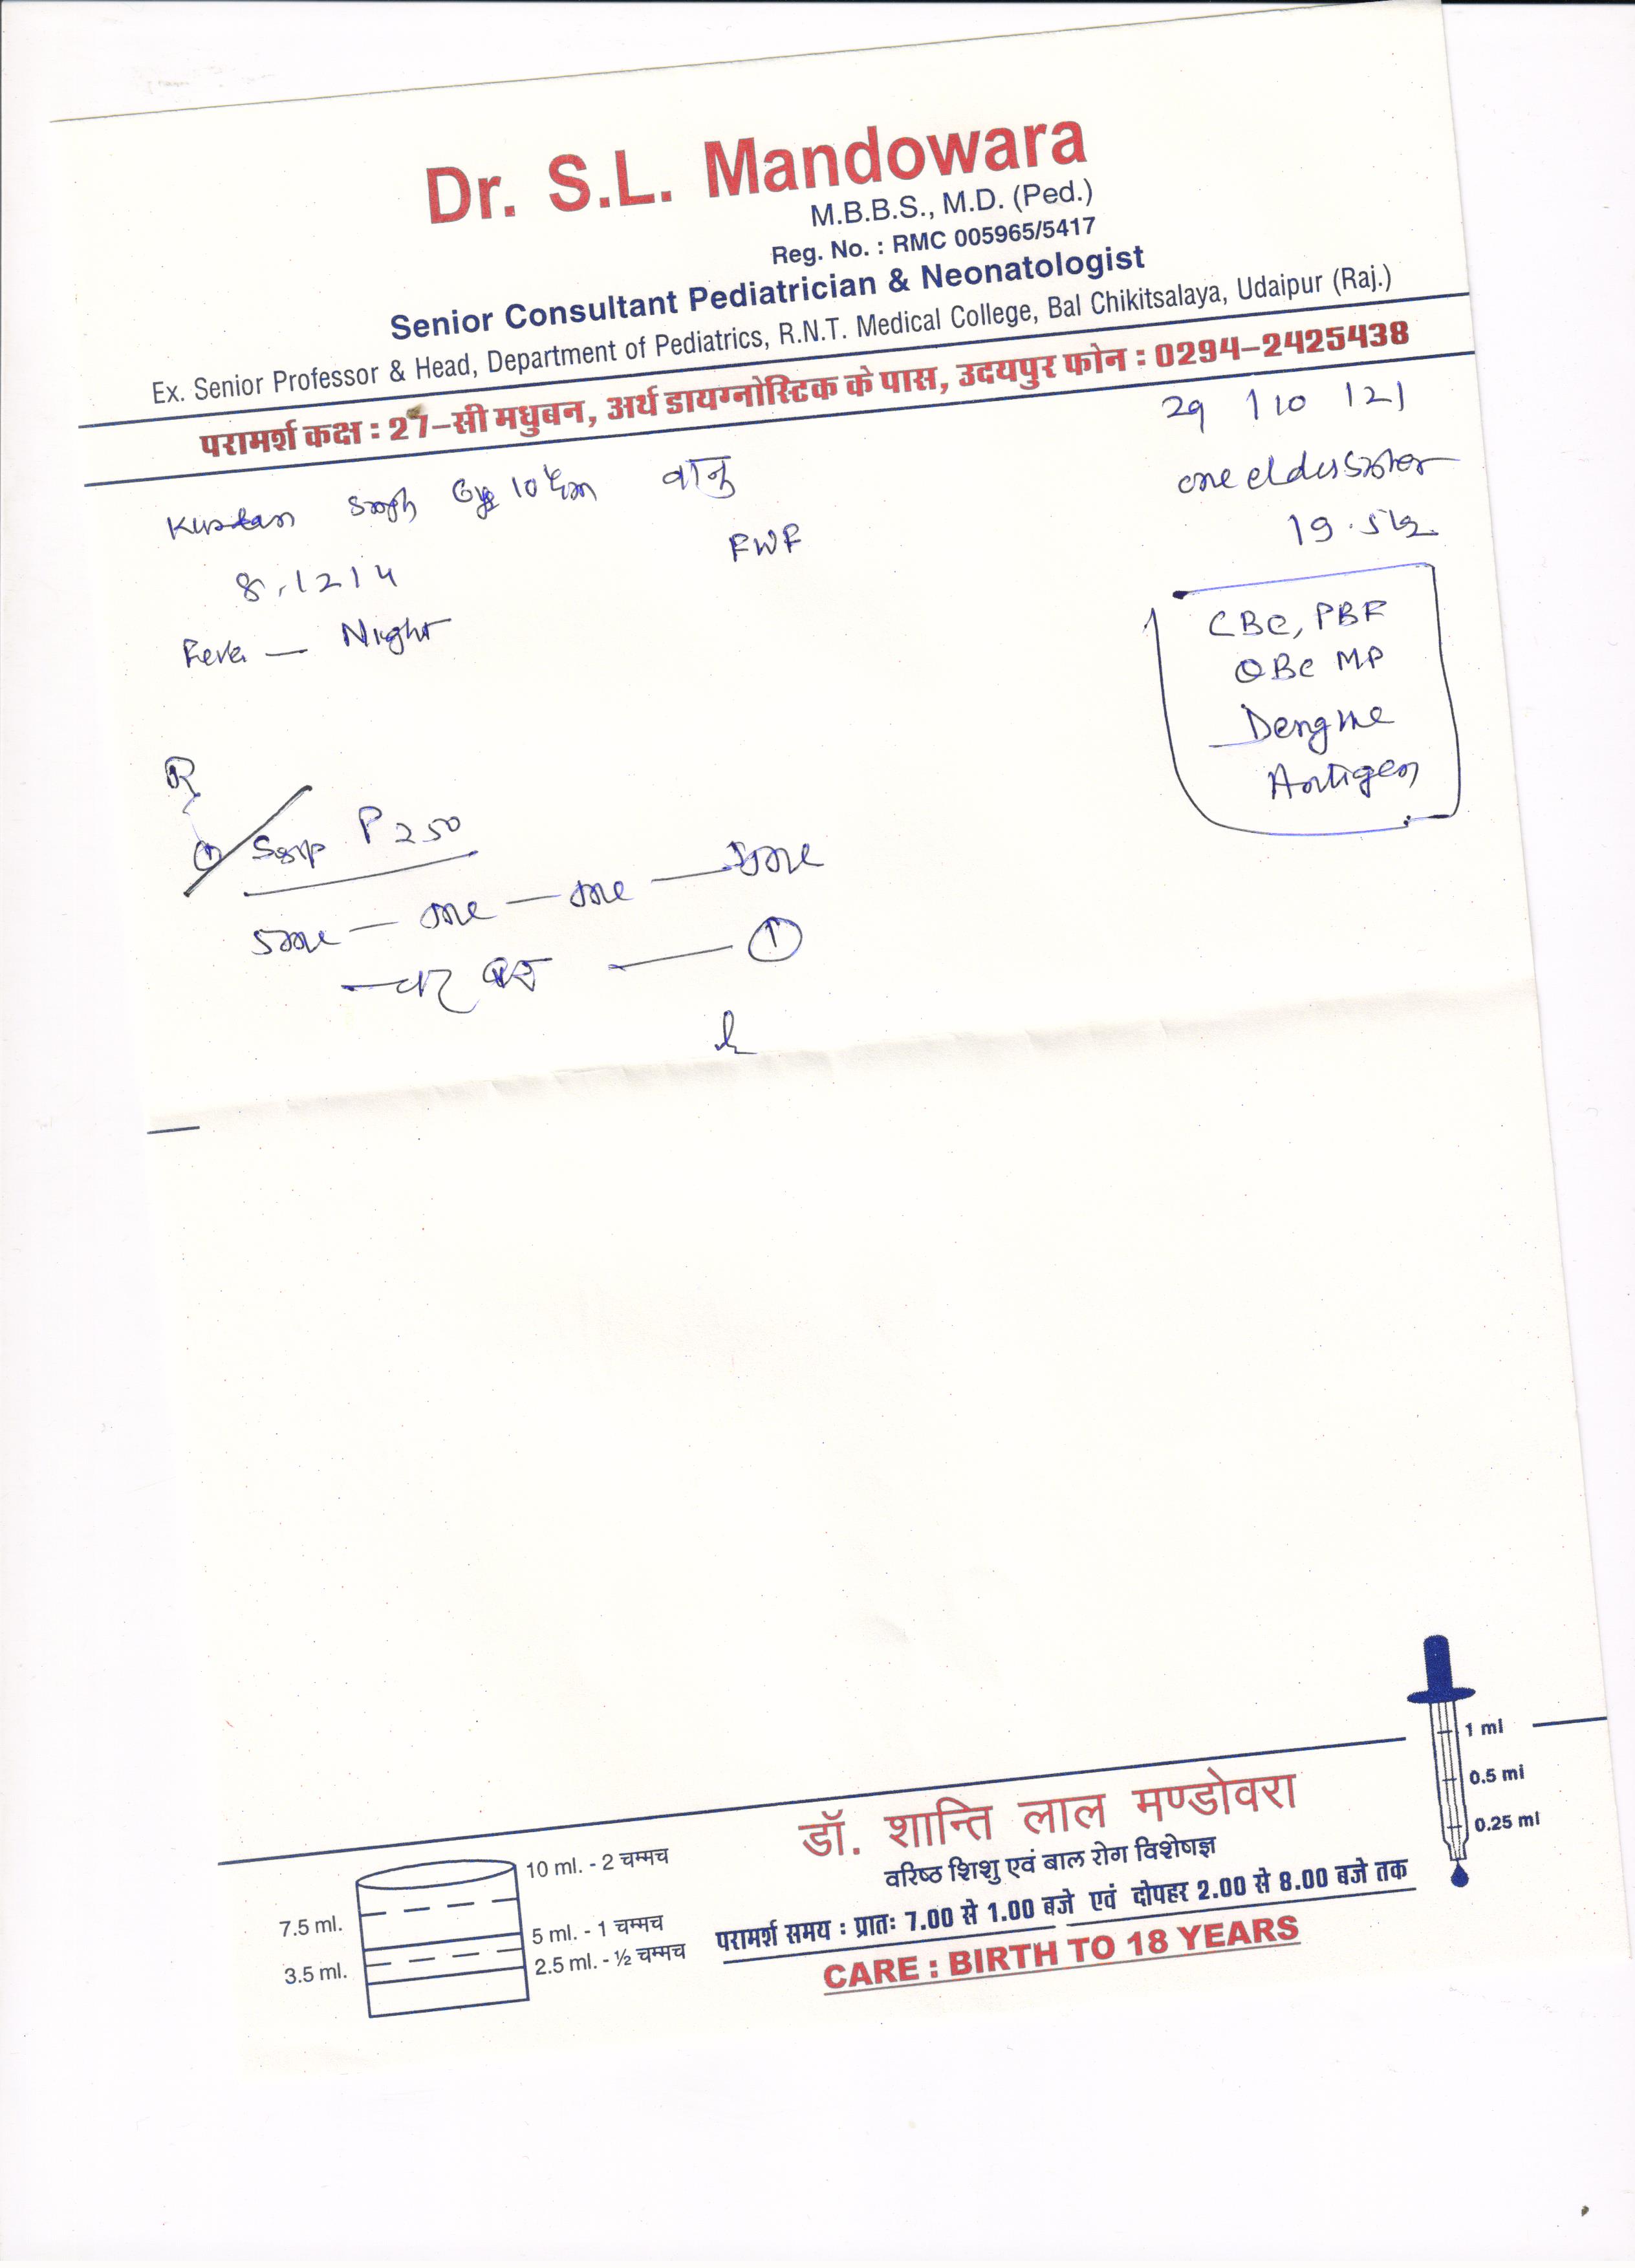 Dr. S.L. Mandowara
M.B.B.S., M.D. (Ped.)
Reg. No. : RMC 005965/5417
Senior Consultant Pediatrician & Neonatologist
Ex. Senior Professor & Head, Department of Pediatrics, R.N.T. Medical College, Bal Chikitsalaya, Udaipur (Raj.)
परामर्श कक्ष : 27-सी मधुबन, अर्थ डायग्नोस्टिक के पास, उदयपुर फोन : 0294-2425438
29 | 10 | 21
one elder sister
FWF
19.5
8.1214
Night
CBC, PBF
QBC MP
Dengue
Antigen
P 250
5ml
1
10 ml. - 2 चम्मच
7.5 ml.
5 ml. - 1 चम्मच
3.5 ml.
2.5 ml. - ½ चम्मच
डॉ. शान्ति लाल मण्डोवरा
वरिष्ठ शिशु एवं बाल रोग विशेषज्ञ
परामर्श समय : प्रातः 7.00 से 1.00 बजे एवं दोपहर 2.00 से 8.00 बजे तक
CARE : BIRTH TO 18 YEARS
1 ml
0.5 ml
0.25 ml